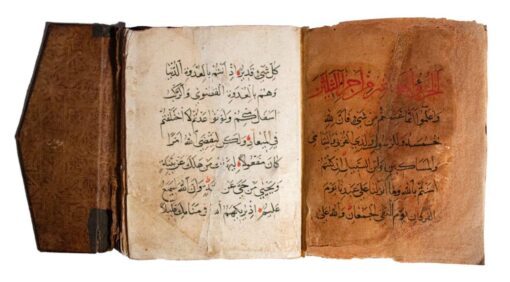 واعلموا انما غنمتم من شى فان لله
خمسه وللرسول ولذى القربى واليتامى
والمساكين وابن السبيل ان كنتم
امنتم بالله وما انزلنا على عبدنا يوم
الفرقان يوم التقى الجمعان والله على
كل شى قدير اذ انتم بالعدوة الدنيا
وهم بالعدوة القصوى والركب
اسفل منكم ولو تواعدتم لاختلفتم
فى الميعاد ولكن ليقضى الله امرا
كان مفعولا ليهلك من هلك عن بينة
ويحيى من حى عن بينة وان الله لسميع
عليم اذ يريكهم الله فى منامك قليلا